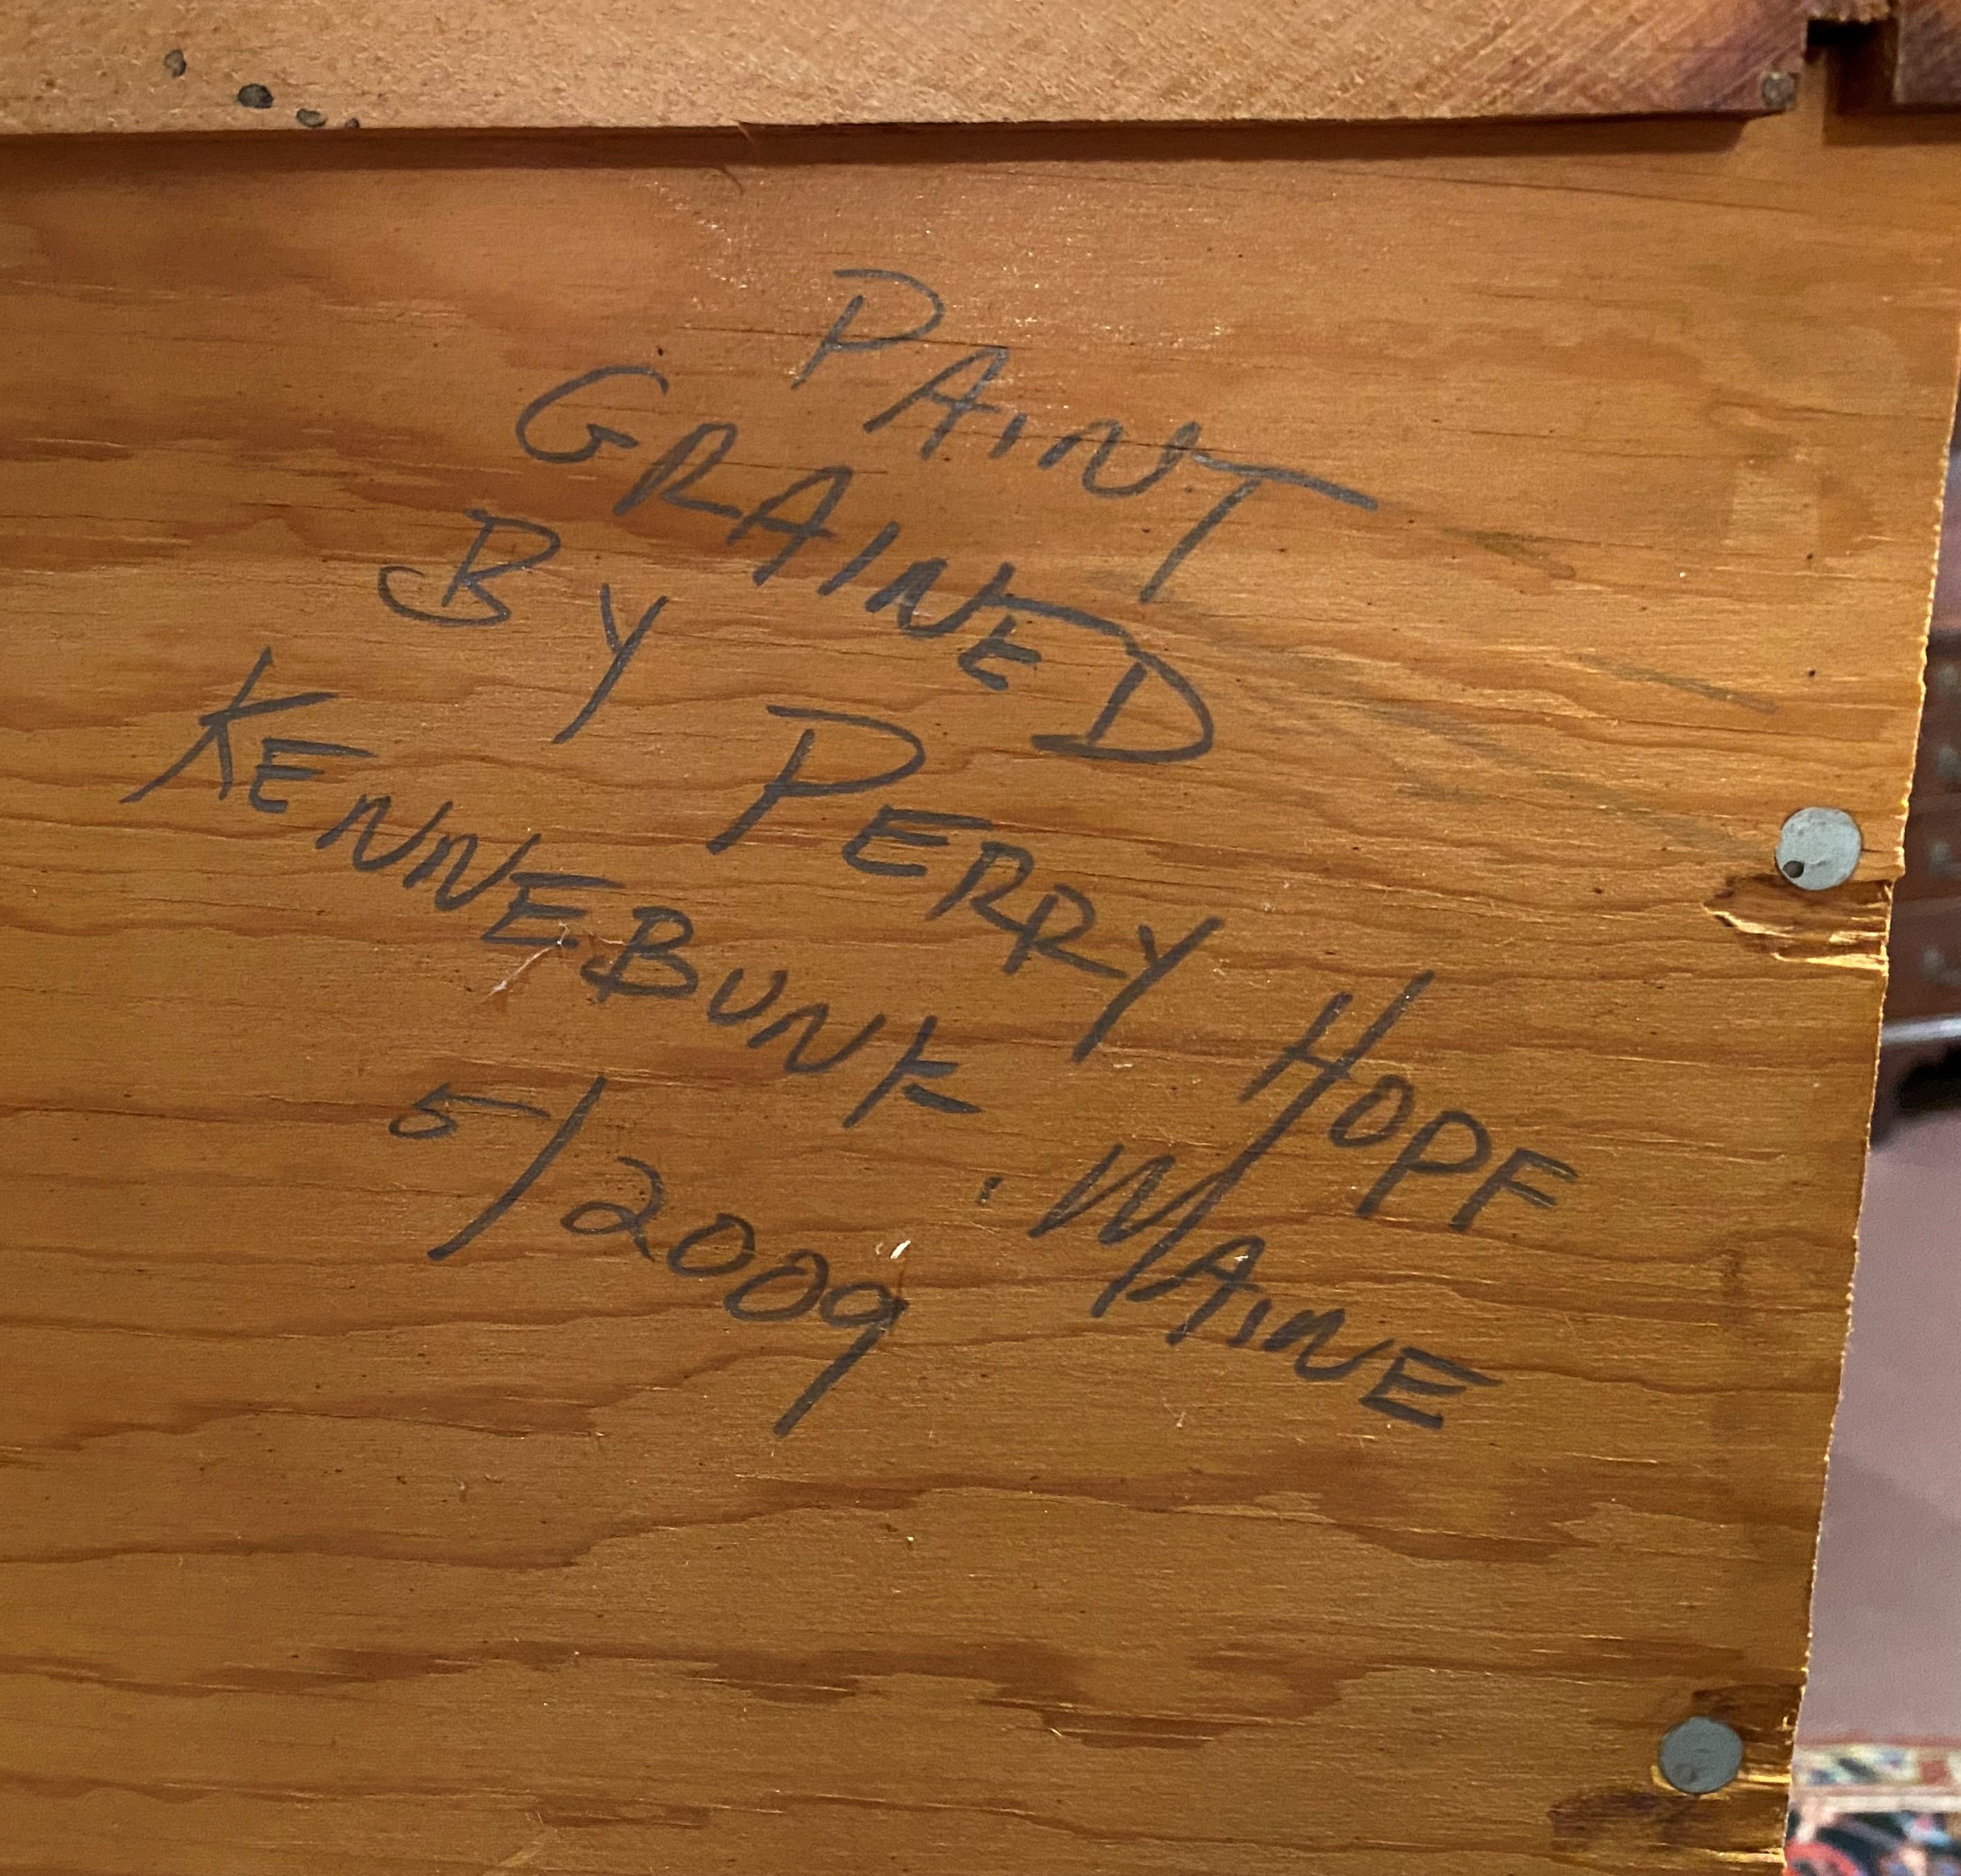 PAINT
GRAINED
BY PERRY HOPF
KENNEBUNK, MAINE
5/2009